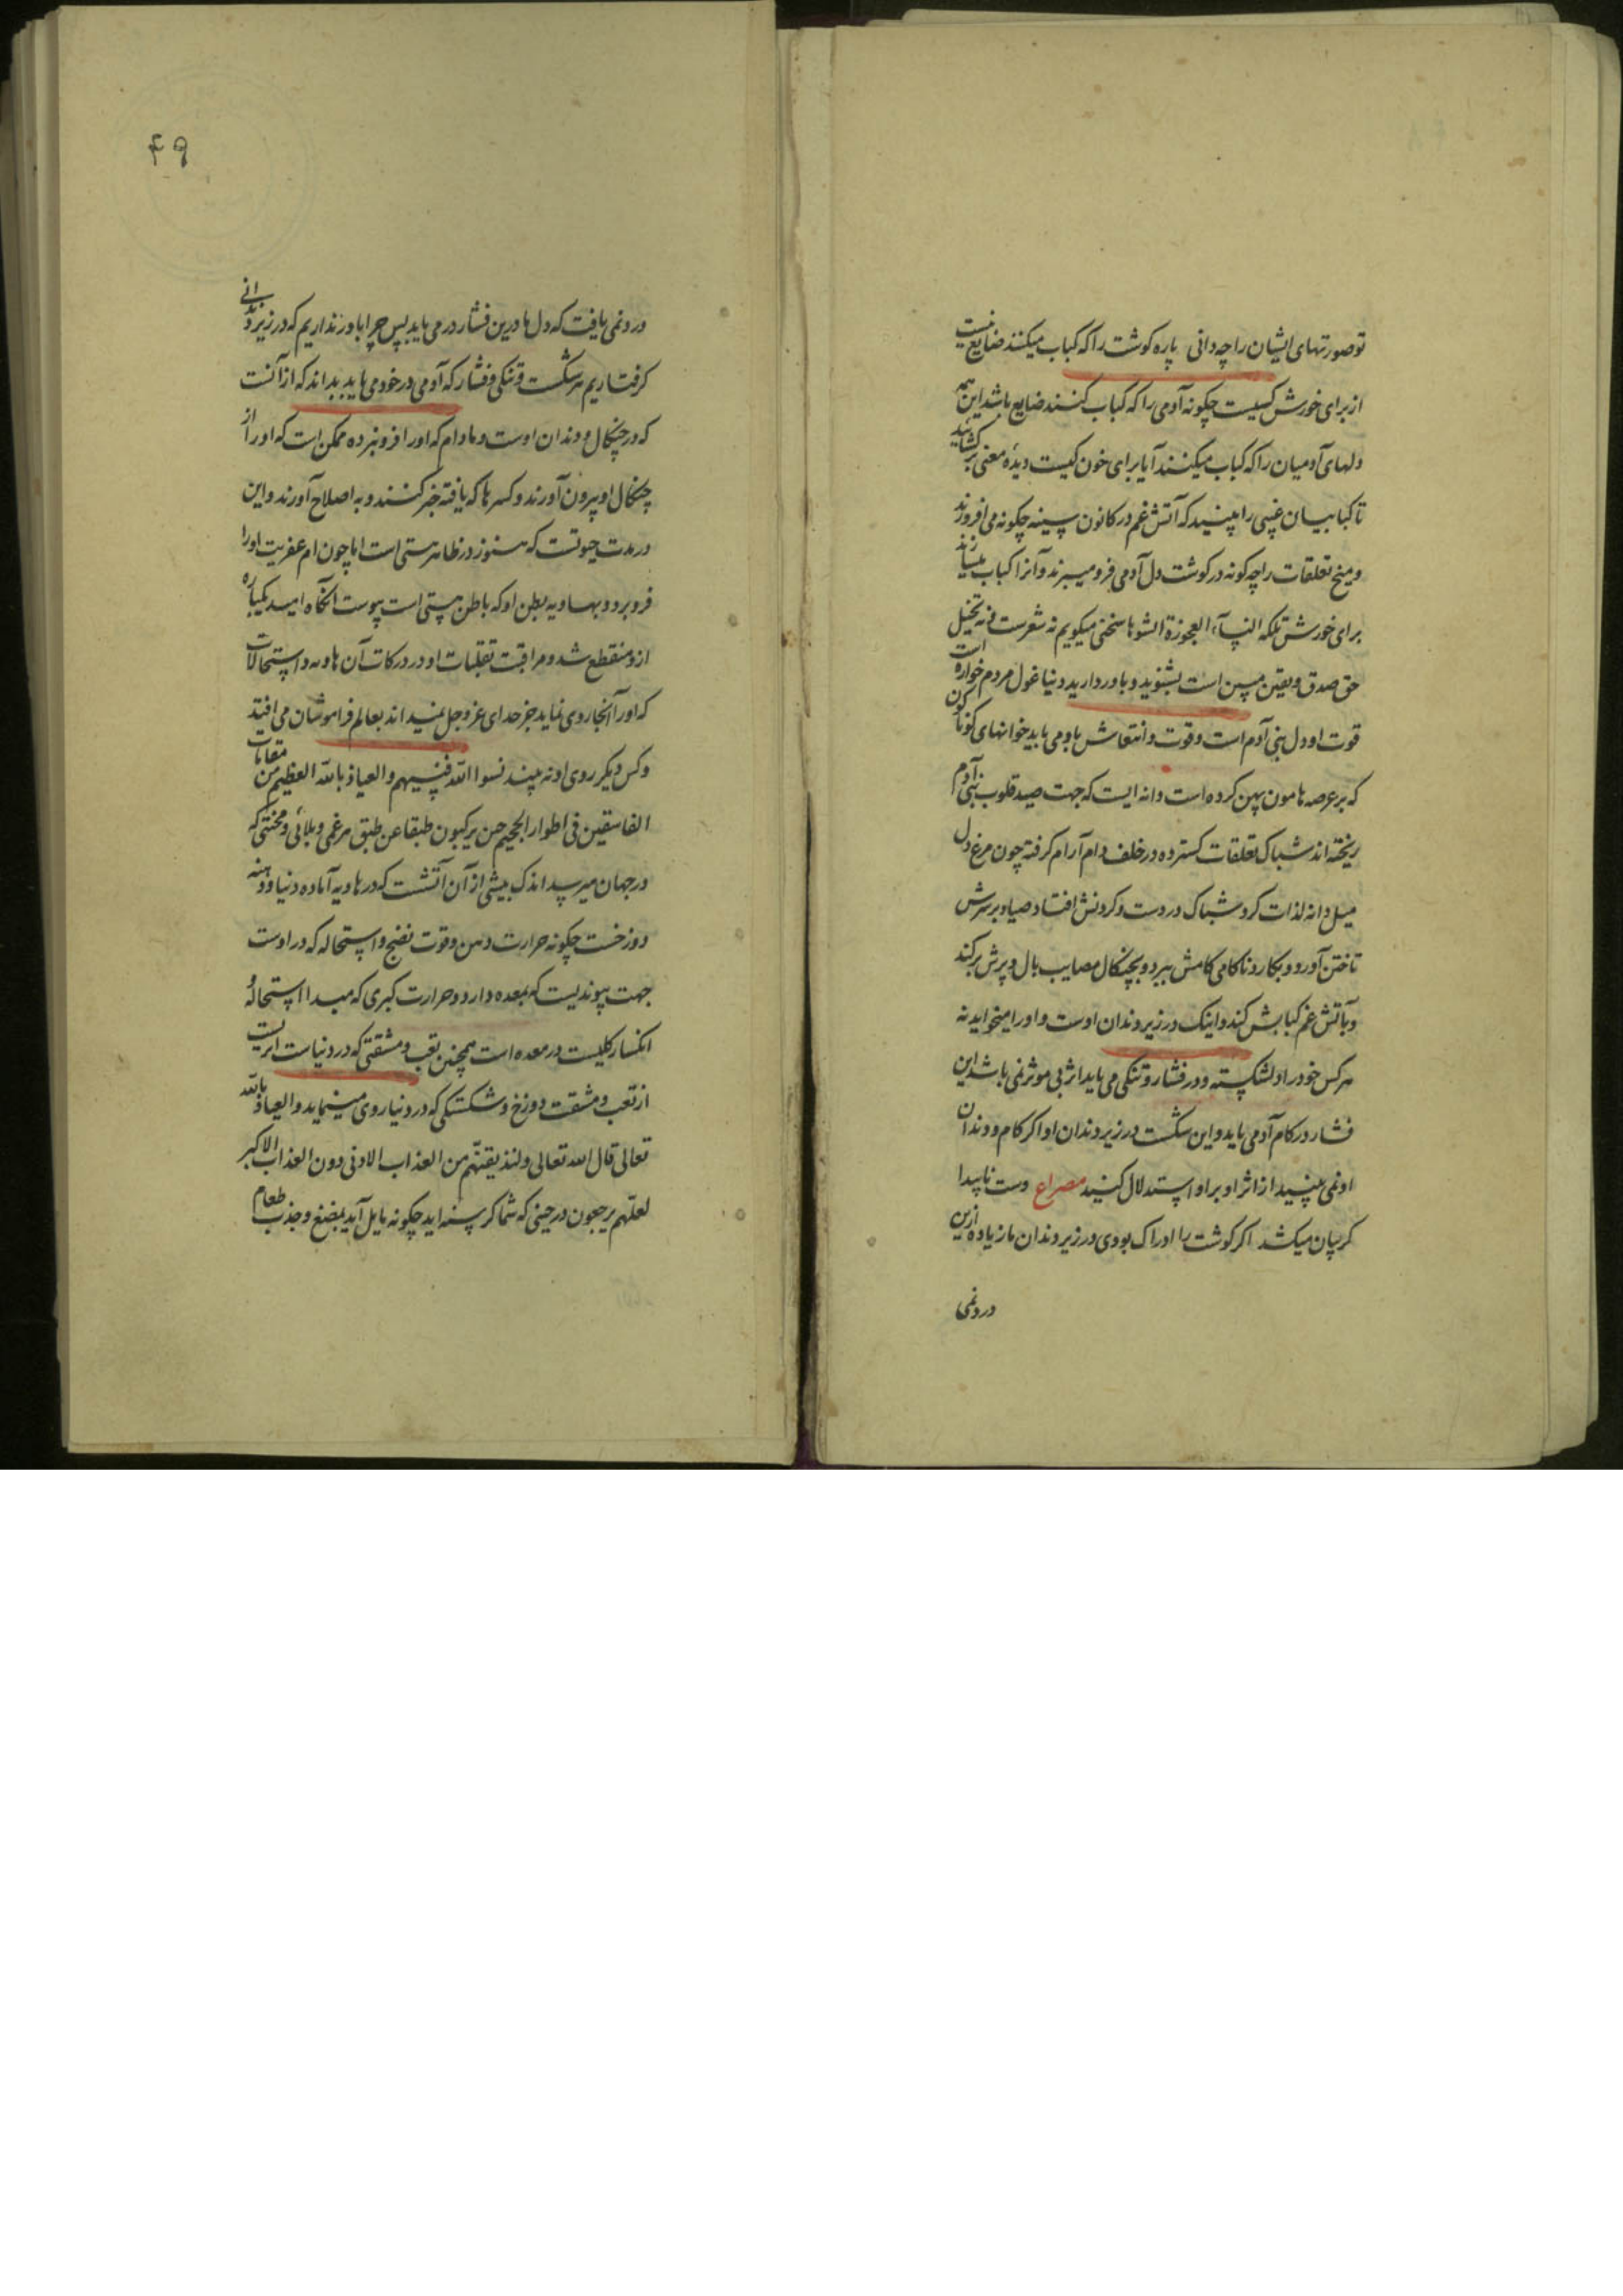 تو صورتهای ایشان را چه دانی پاره گوشت را که کباب میکنند ضایع نیست
از برای خورش کسیست چگونه آدمی را که کباب کنند ضایع باشد این همه
دلهای آدمیان را که کباب میکنند آیا برای خون کیست دیدهٔ معنی برگشائید
تا کبابیان غیبی را ببینید که آتش غم در کانون سینه چگونه می افروزند
و میخ تعلقات را چه کونه در کوشت دل آدمی فرو میبرند و آنرا کباب میسازند
برای خورش ملکه العجوزة الشوها سخنی میکویم نه شعرست و نه تخیل
حق صدق و یقین مبین است بشنوید و باور دارید دنیا غول مردم خواره است
قوت او دل بنی آدم است و قوت و انتعاش باو می یابد خوانهای کوناکون
که بر عرصه هامون پهن کرده است دانه ایست که جهت صید قلوب بنی آدم
ریخته اند شباک تعلقات کسترده در خلف دام آرام کرفته چون مرغ دل
میل دانه لذات کرد شباک در دست و کردنش افتاد صیاد بر سرش
تاختن آورد و بکارد ناکامی کامش ببرد و بچنکال مصایب بال و پرش برکند
و بآتش غم کبابش کند و اینک در زیر دندان اوست و او را میخاید نه
هر کس خود را دلشکسته و در فشار و تنکی می یابد اثر بی موثر نمی باشد این
فشار در کام آدمی یابد و این شکست در زیر دندان او اکر کام و دندان
او نمی بینید از اثر او بر او استدلال کنید مصراع دست ناپیدا
کریبان میکشد اکر کوشت را ادراک بودی در زیر دندان ما زیاده ازین
درد نمی
۴۹
درد نمی یافت که دل ها درین فشار در می یابد پس چرا باور نداریم که در زیر دندانی
کرفتاریم هر شکست و تنکی و فشار که آدمی در خود می یابد بداند که از آنست
که در چنکال و دندان اوست و مادام که او را فرو نبرده ممکن است که او را از
چنکال او بیرون آورند و کسرها که یافته جبر کنند و به اصلاح آورند و این
در مدت حیوتست که هنوز در ظاهر هستی است اما چون ام عفریت او را
فرو برد و بهاویه بطن او که باطن هستی است پیوست آنکاه امید یکباره
ازو منقطع شد و مراقبت تقلبات او در درکات آن هاویه و استحالات
که او را آنجا روی نماید جز خدای عز و جل نمیداند بعالم فراموشان می افتد
و کس دیکر روی او نه بیند نسوا الله فنسیهم و العیاذ بالله العظیم من مقامات
الفاسقین فی اطوار الجحیم حین یرکبون طبقا عن طبق هر غمی و بلائی و محنتی که
در جهان میرسد اندک بیشی از آن آتشست که در هاویه آماده دنیا و دهنه
دوزخست چکونه حرارت دهن و قوت نضج و استحاله که در اوست
جهت پیوندیست که بمعده دارد و حرارت کبری که مبدا استحاله
انکسار کلیست در معده است همچنین تعب و مشقتی که در دنیاست اثریست
از تعب و مشقت دوزخ و شکستکی که در دنیا روی مینماید و العیاذ بالله
تعالی قال الله تعالی ولنذیقنهم من العذاب الادنی دون العذاب الاکبر
لعلهم یرجعون در حینی که شما کرسنه اید چکونه مایل آید بمضغ و جذب طعام